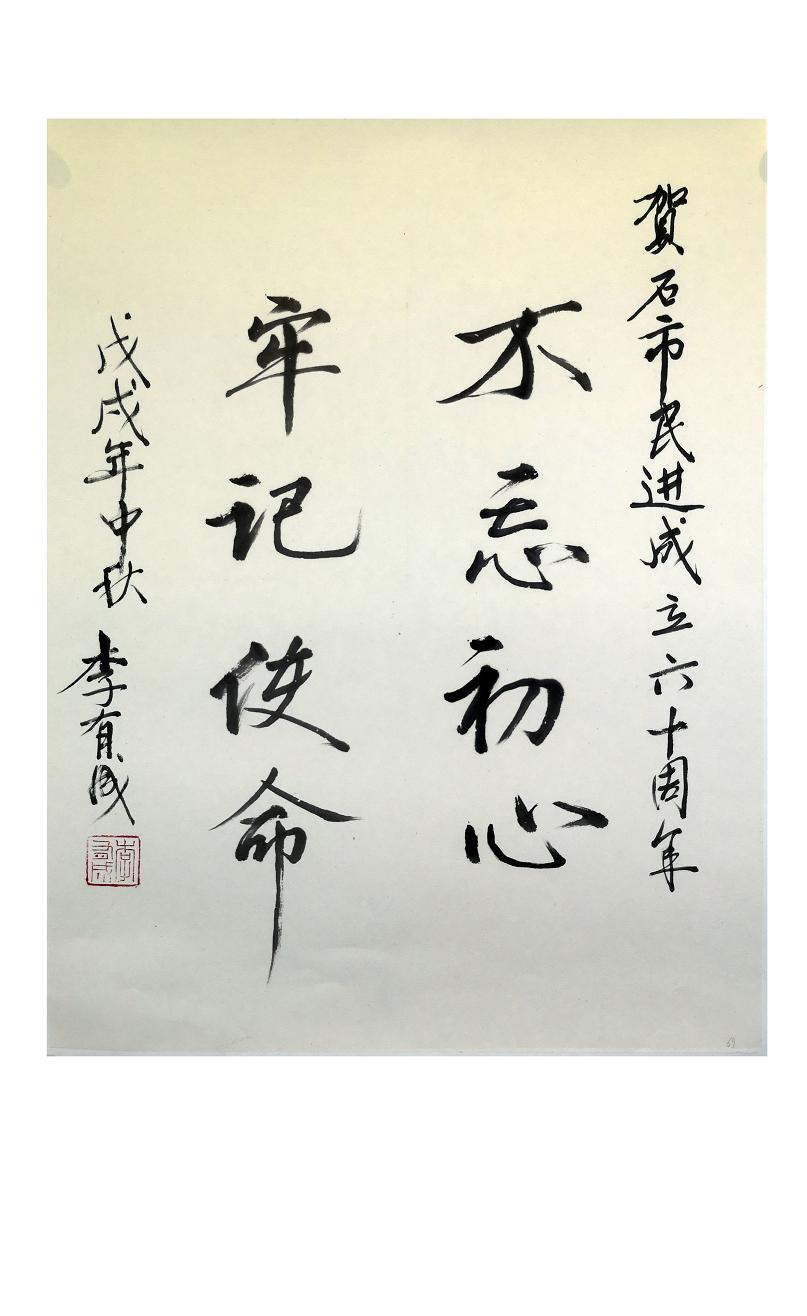 贺石市民进成立六十周年
不忘初心
牢记使命
戊戌年中秋 李有成